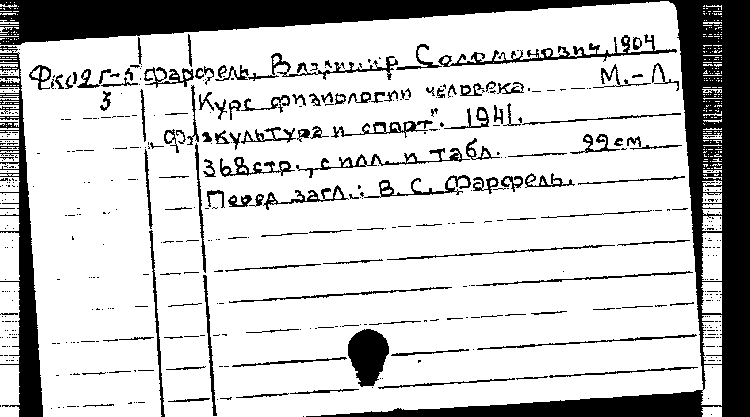 Фк02Г-5 Фарфель, Владимир Соломонович, 1904
3 Курс физиологии человека. М.-Л.,
„Физкультура и спорт". 1941.
368стр., с илл. и табл. 22см.
Перед загл.: В. С. Фарфель.